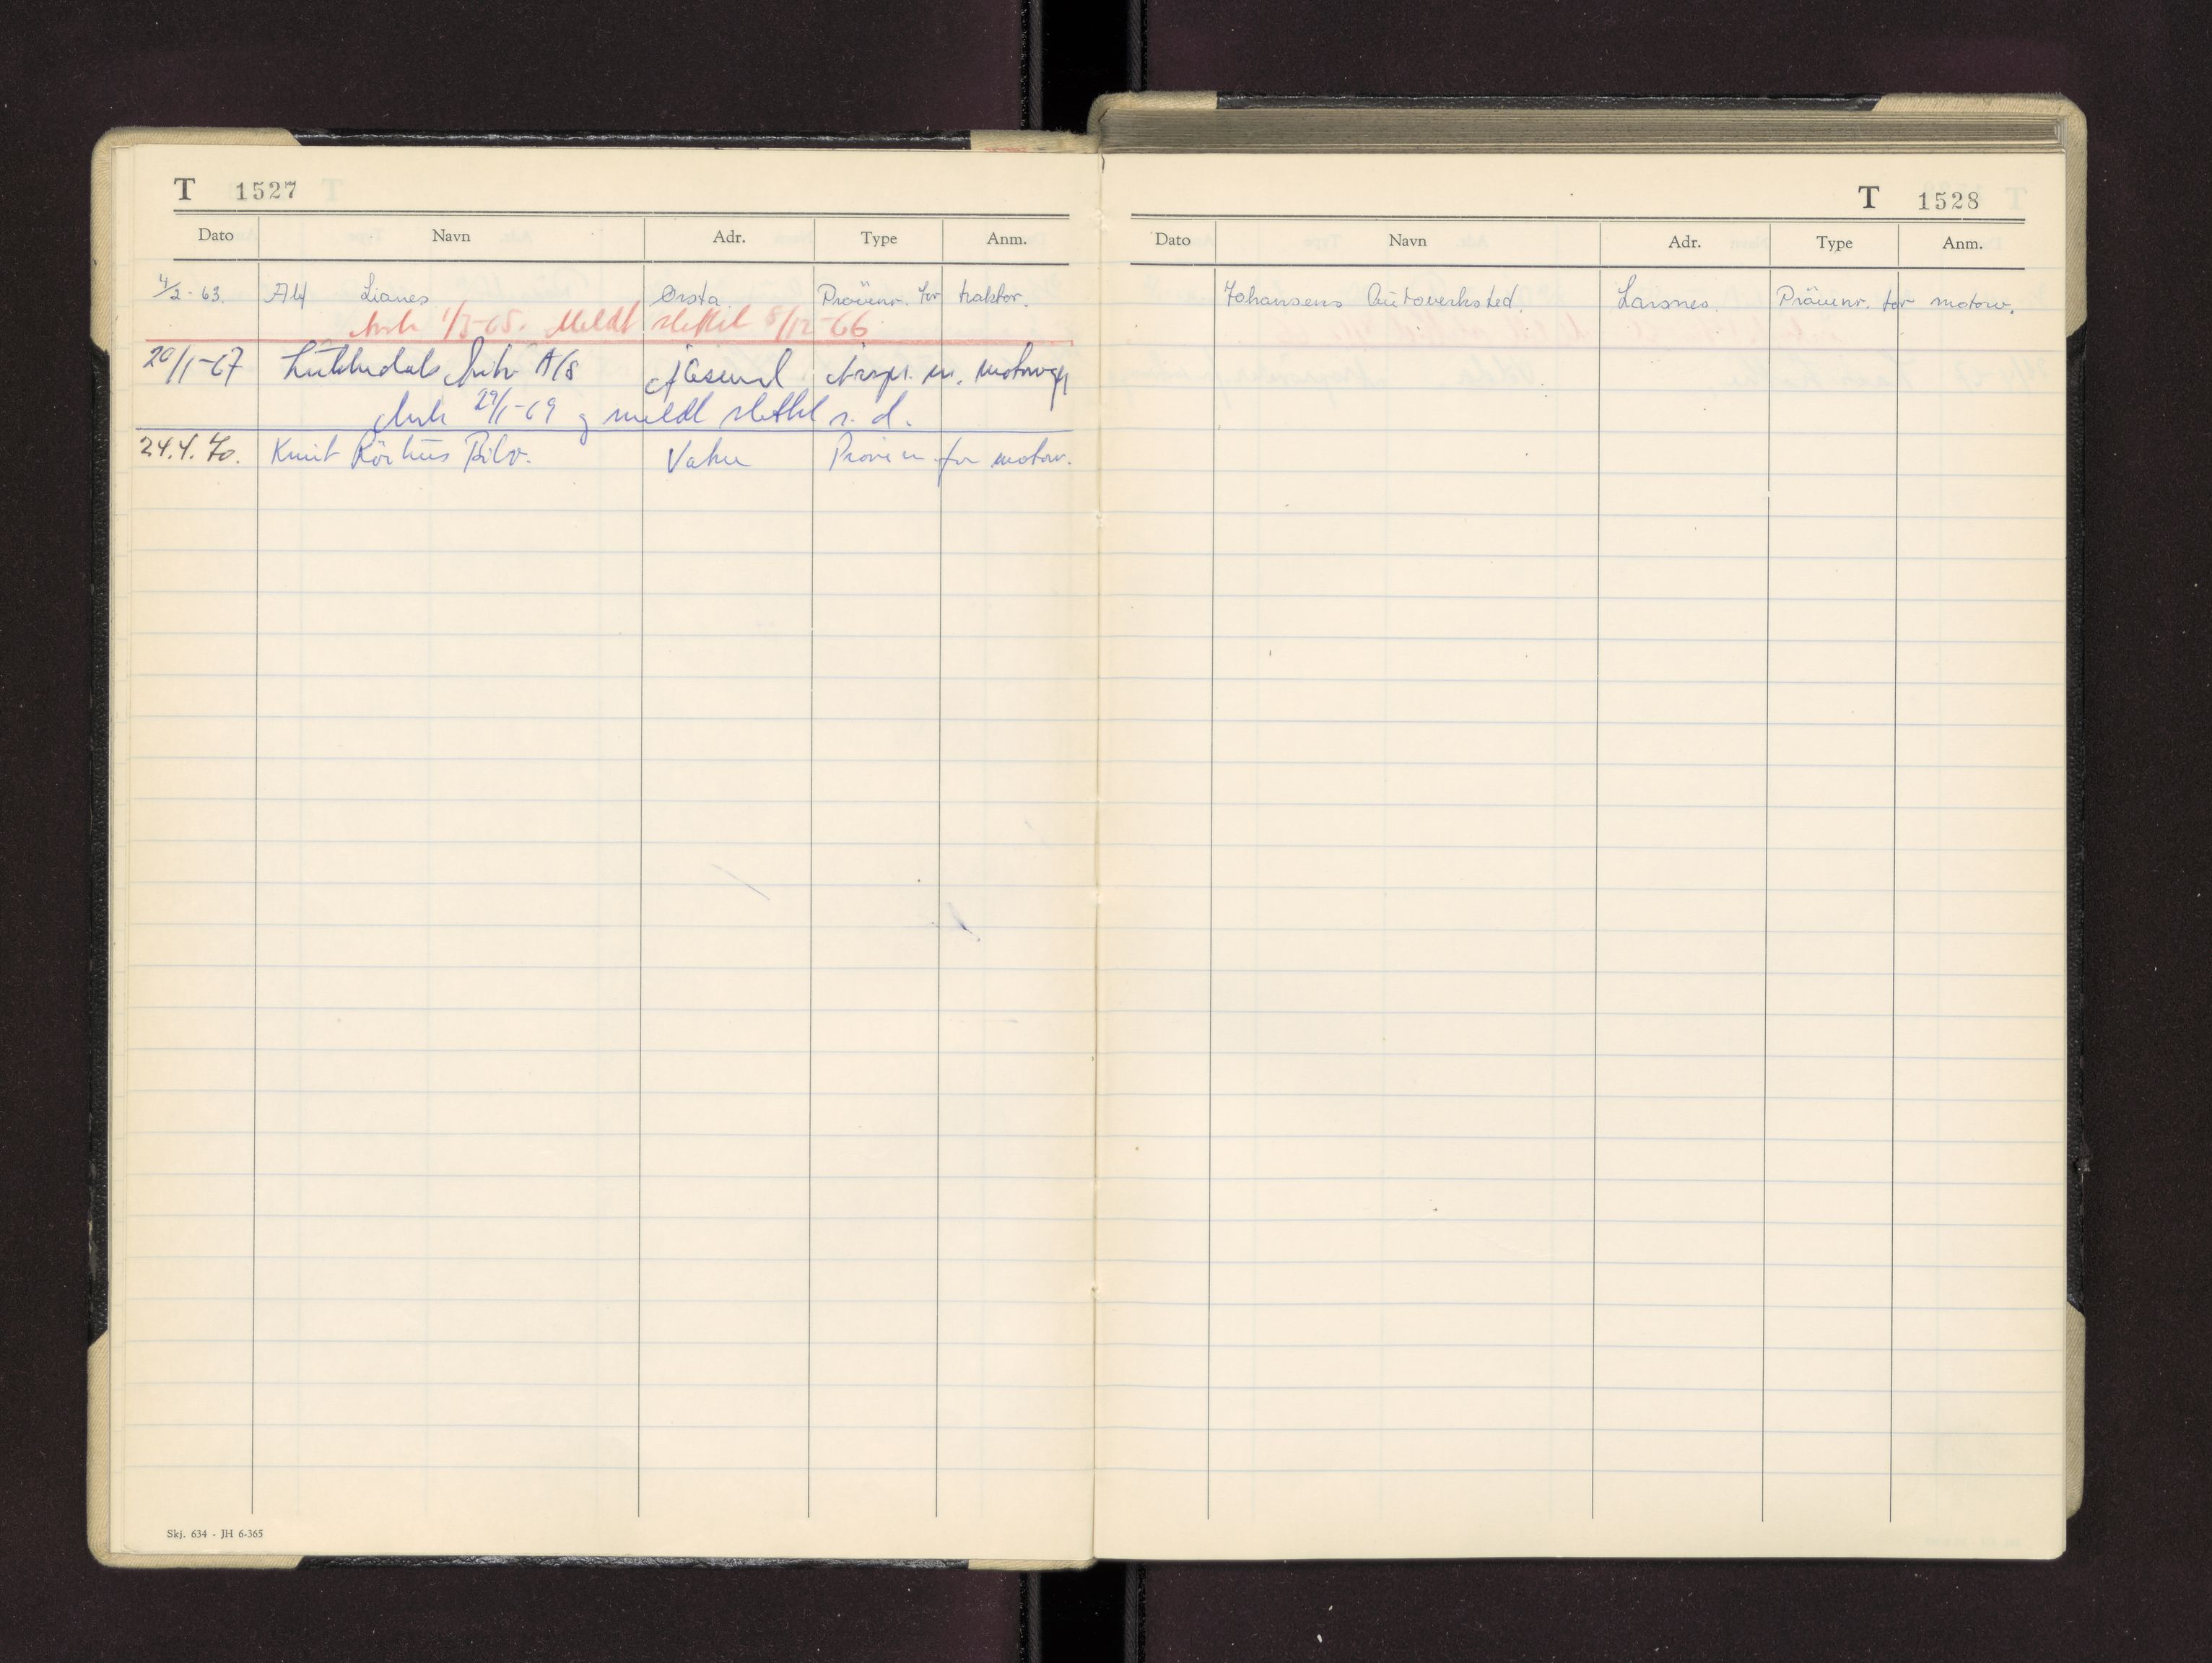 T 1527
Dato Navn Adr. Type Anm.
4/2-63. Alf Lianes Ørsta Prövenr. for traktor.
Avsk 1/3-65. Meldt slettet 8/12-66
20/1-67 A/S m. motorvgn
Avsk 29/1-69 og meldt slettet s. d.
24.4.70. Knut Rörhus Bilv. Vatne for motorv.
Skj. 634 - JH 6-365
T 1528
Dato Navn Adr. Type Anm.
Johansens Autoverksted. Larsnes. Prövenr. for motorv.